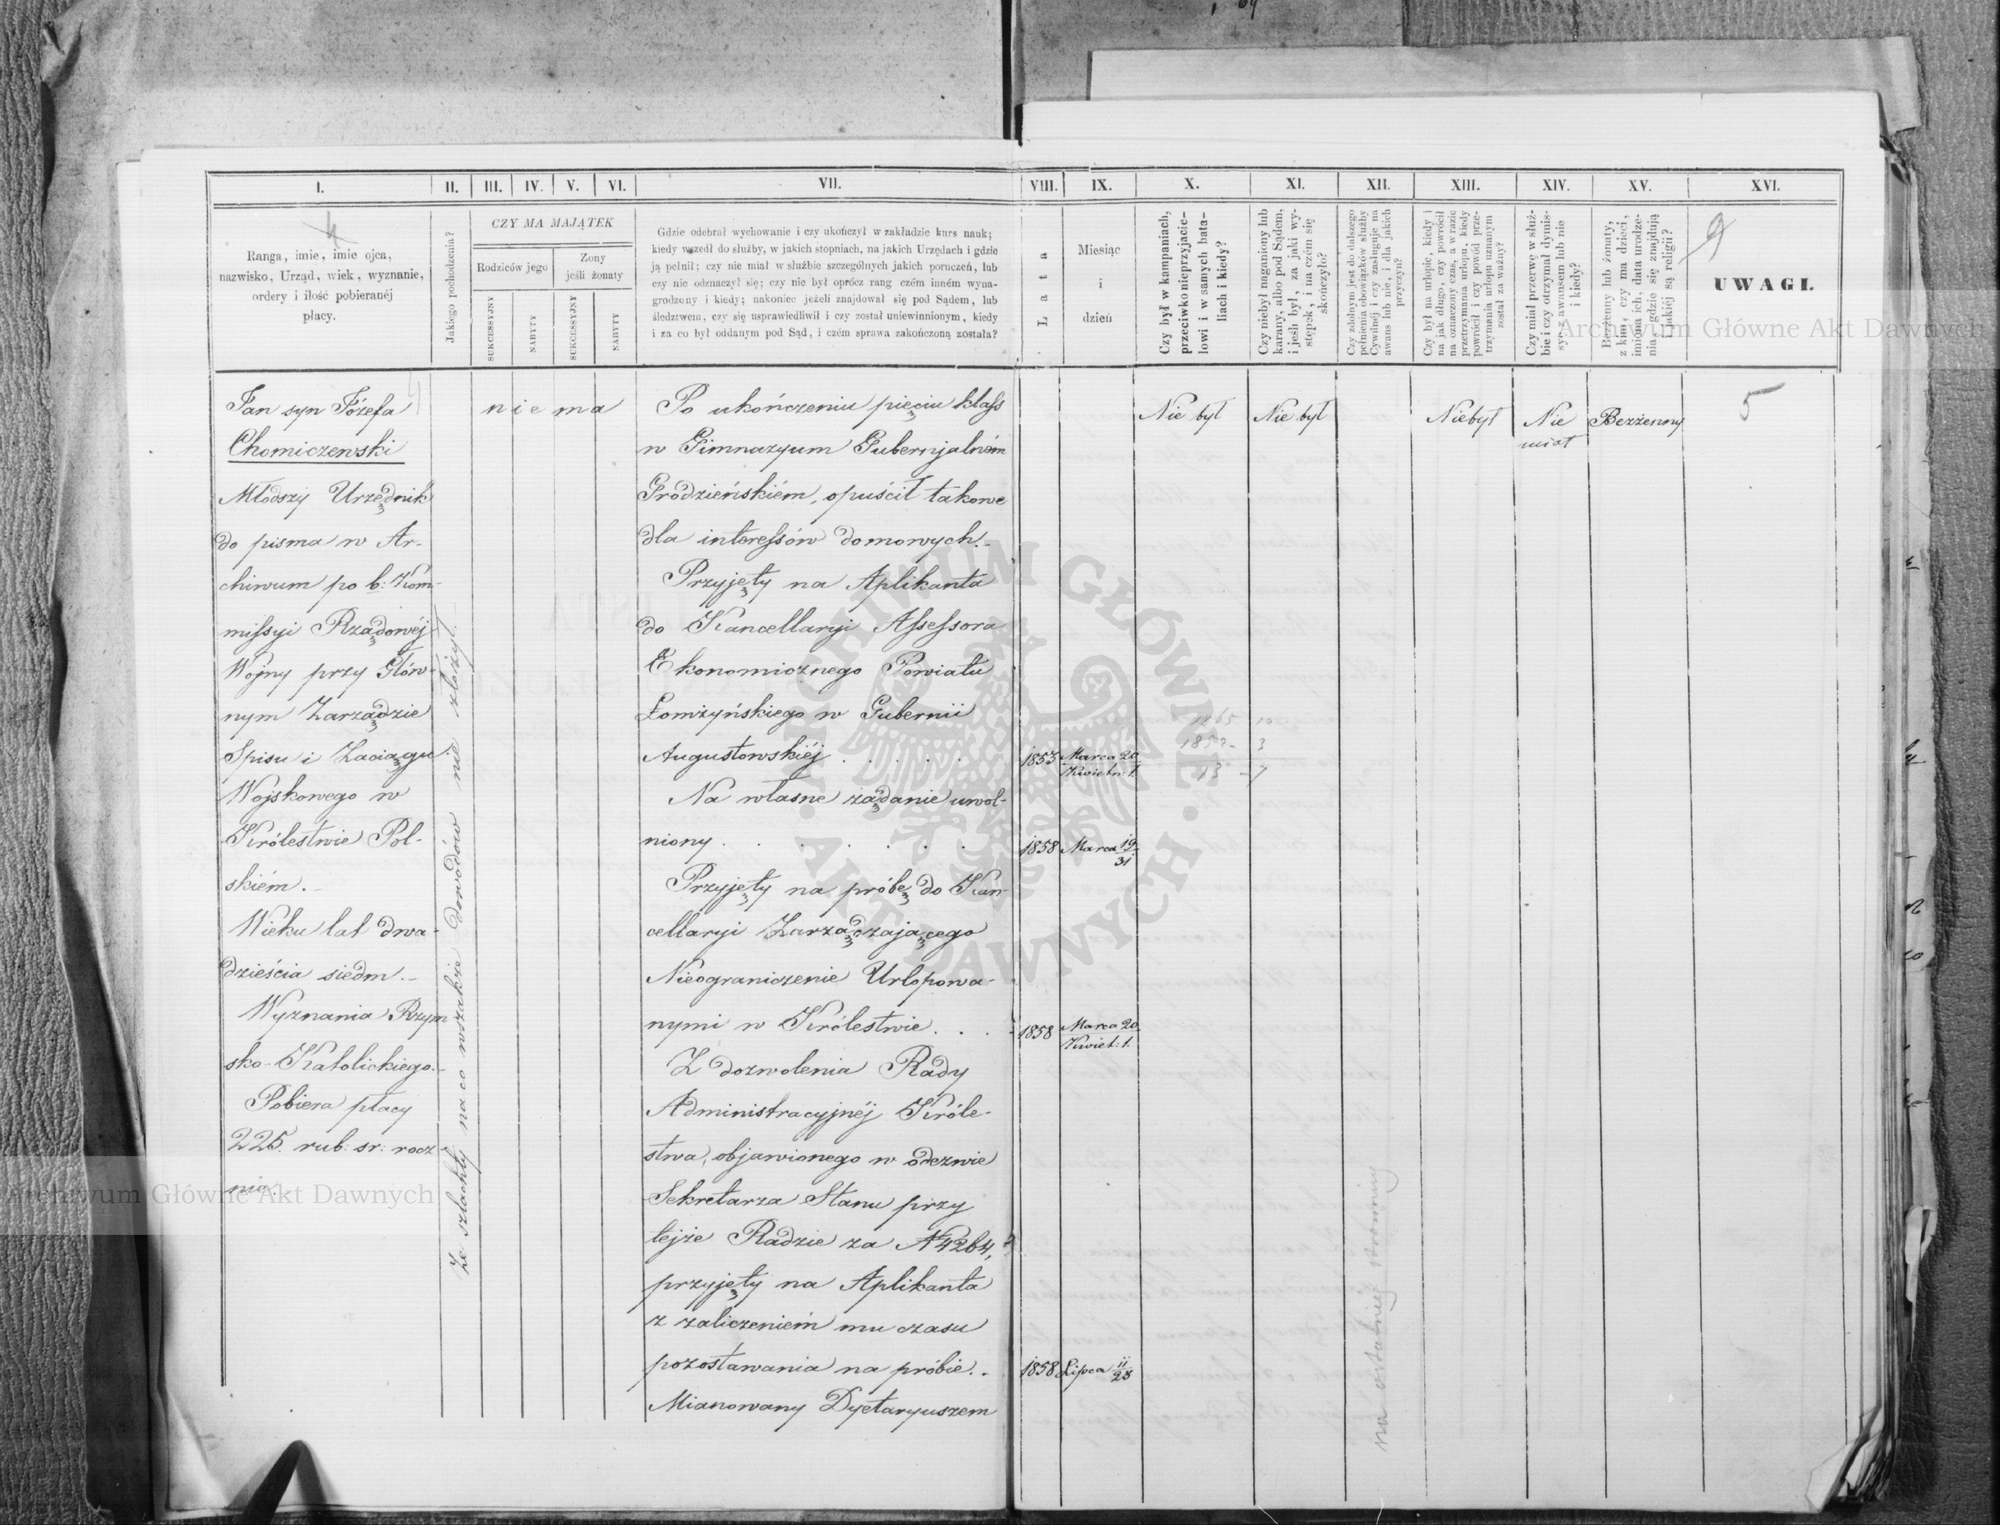 I. II. III. IV. V. VI. VII. VIII. IX. X. XI. XII. XIII. XIV. XV. XVI.
Ranga, imie, imie ojca,
nazwisko, Urząd, wiek, wyznanie,
ordery i ilość pobieranéj
płacy.
Jakiego pochodzenia?
CZY MA MAJĄTEK
Rodziców jego
Żony
jeśli żonaty
SUKCESSYJNY
NABYTY
SUKCESSYJNY
NABYTY
Gdzie odebrał wychowanie i czy ukończył w zakładzie kurs nauk;
kiedy wszedł do służby, w jakich stopniach, na jakich Urzędach i gdzie
ją pełnił; czy nie miał w służbie szczególnych jakich poruczeń, lub
czy nie odznaczył się; czy nie był oprócz rang czém inném wyna-
grodzony i kiedy; nakoniec jeżeli znajdował się pod Sądem, lub
śledztwem, czy się usprawiedliwił i czy został uniewinnionym, kiedy
i za co był oddanym pod Sąd, i czém sprawa zakończoną została?
Lata
Miesiąc
i
dzień
Czy był w kampaniach,
przeciwko nieprzyjacie-
lowi i w samych bata-
liach i kiedy?
Czy niebył naganiony lub
karany, albo pod Sądem,
i jeśli był, za jaki wy-
stępek, i na czém się
skończyło?
Czy zdolnym jest do dalszego
pełnienia obowiązków służby
Cywilnéj i czy zasługuje na
awans lub nie, i dla jakich
przyczyn?
Czy był na urlopie, kiedy i
na jak długo, czy powrócił
na oznaczony czas, a w razie
przetrzymania urlopu, kiedy
powrócił i czy powód prze-
trzymania urlopu uznanym
został za ważny?
Czy miał przerwę w służ-
bie i czy otrzymał dymis-
syę z awansem lub nie
i kiedy?
Bezżenny lub żonaty,
z kim, czy ma dzieci,
imiona ich, data urodze-
nia, gdzie się znajdują
i jakiéj są religii?
9
UWAGI.
Jan syn Józefa
Chomiczewski
Młodszy Urzędnik
do pisma w Ar-
chiwum po b: Kom-
missyi Rządowéj
Wojny przy Głów-
nym Zarządzie
Spisu i Zaciągu
Wojskowego w
Królestwie Pol-
skiém.
Wieku lat dwa-
dzieścia siedm.
Wyznania Rzym
sko-Katolickiego.
Pobiera płacy
225. rub: sr: rocz
nie.
Ze szlachty na co wszakże dowodów nie złożył.
nie ma
Po ukończeniu pięciu klass
w Gimnazyum Gubernjalném
Grodzieńskiém, opuścił takowe
dla interessów domowych.
Przyjęty na Aplikanta
do Kancellaryi Assessora
Ekonomicznego Powiatu
Łomżyńskiego w Gubernii
Augustowskiéj . . . . .
1853 Marca 20
Kwietn: 1.
Na własne żądanie uwol-
niony . . . . . . .
1858 Marca 19
31
Przyjęty na próbę do Kan-
cellaryi Zarządzającego
Nieograniczenie Urlopowa-
nymi w Królestwie . . .
1858 Marca 20
Kwiet: 1.
Z dozwolenia Rady
Administracyjnéj Króle-
stwa, objawionego w odezwie
Sekretarza Stanu przy
tejże Radzie za N 4264,
przyjęty na Aplikanta
z zaliczeniém mu czasu
pozostawania na próbie.
1858 Lipca 11
23
Mianowany Dyetaryuszem
Nie był
Nie był
Niebył
Nie
miał
Bezżenny
5
1865 10
1852 - 3
13 - 7
na ostatniéj stronnicy
Archiwum Główne Akt Dawnych
Archiwum Główne Akt Dawnych
ARCHIWUM GŁÓWNE AKT DAWNYCH